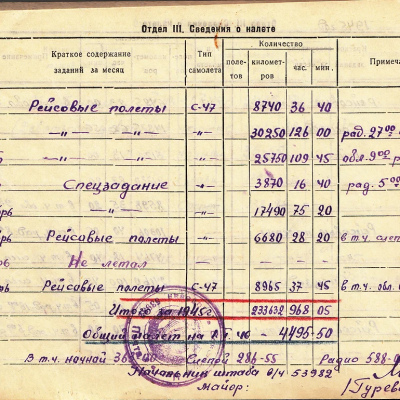 Отдел III. Сведения о налете
Краткое содержание заданий за месяц Тип самолета Количество Примеча
полетов километров час. мин.
Рейсовые полеты С-47 8740 36 40
—"— —"— —"— 30250 126 00 рад. 27 00
—"— —"— —"— 25750 109 45 обл. 9 00
Спецзадание —"— 3870 16 40 рад. 5 00
рь —"— —"— 17490 75 20
брь Рейсовые полеты —"— 6680 28 20 в т.ч. слеп
рь Не летал — — —
рь Рейсовые полеты С-47 8965 37 45 в т.ч. обл.
Итого за 1945г. 233632 968 05
Общий налет на 1.I.46 — 4495-50
В т.ч. ночной Слепой 286-55 Радио 588-
Начальник штаба в/ч 53982
Майор: /Гурев